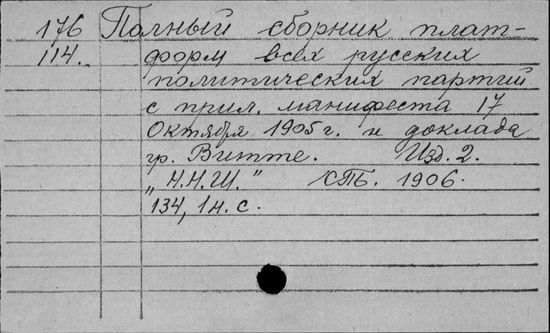 176 Полный сборник плат-
114. форм всех русских
политических партий
с прил. манифеста 17
Октября 1905 г. и доклада
гр. Витте. Изд. 2.
„Н.Н.Ш." СПБ. 1906.
134, 1 н. с.